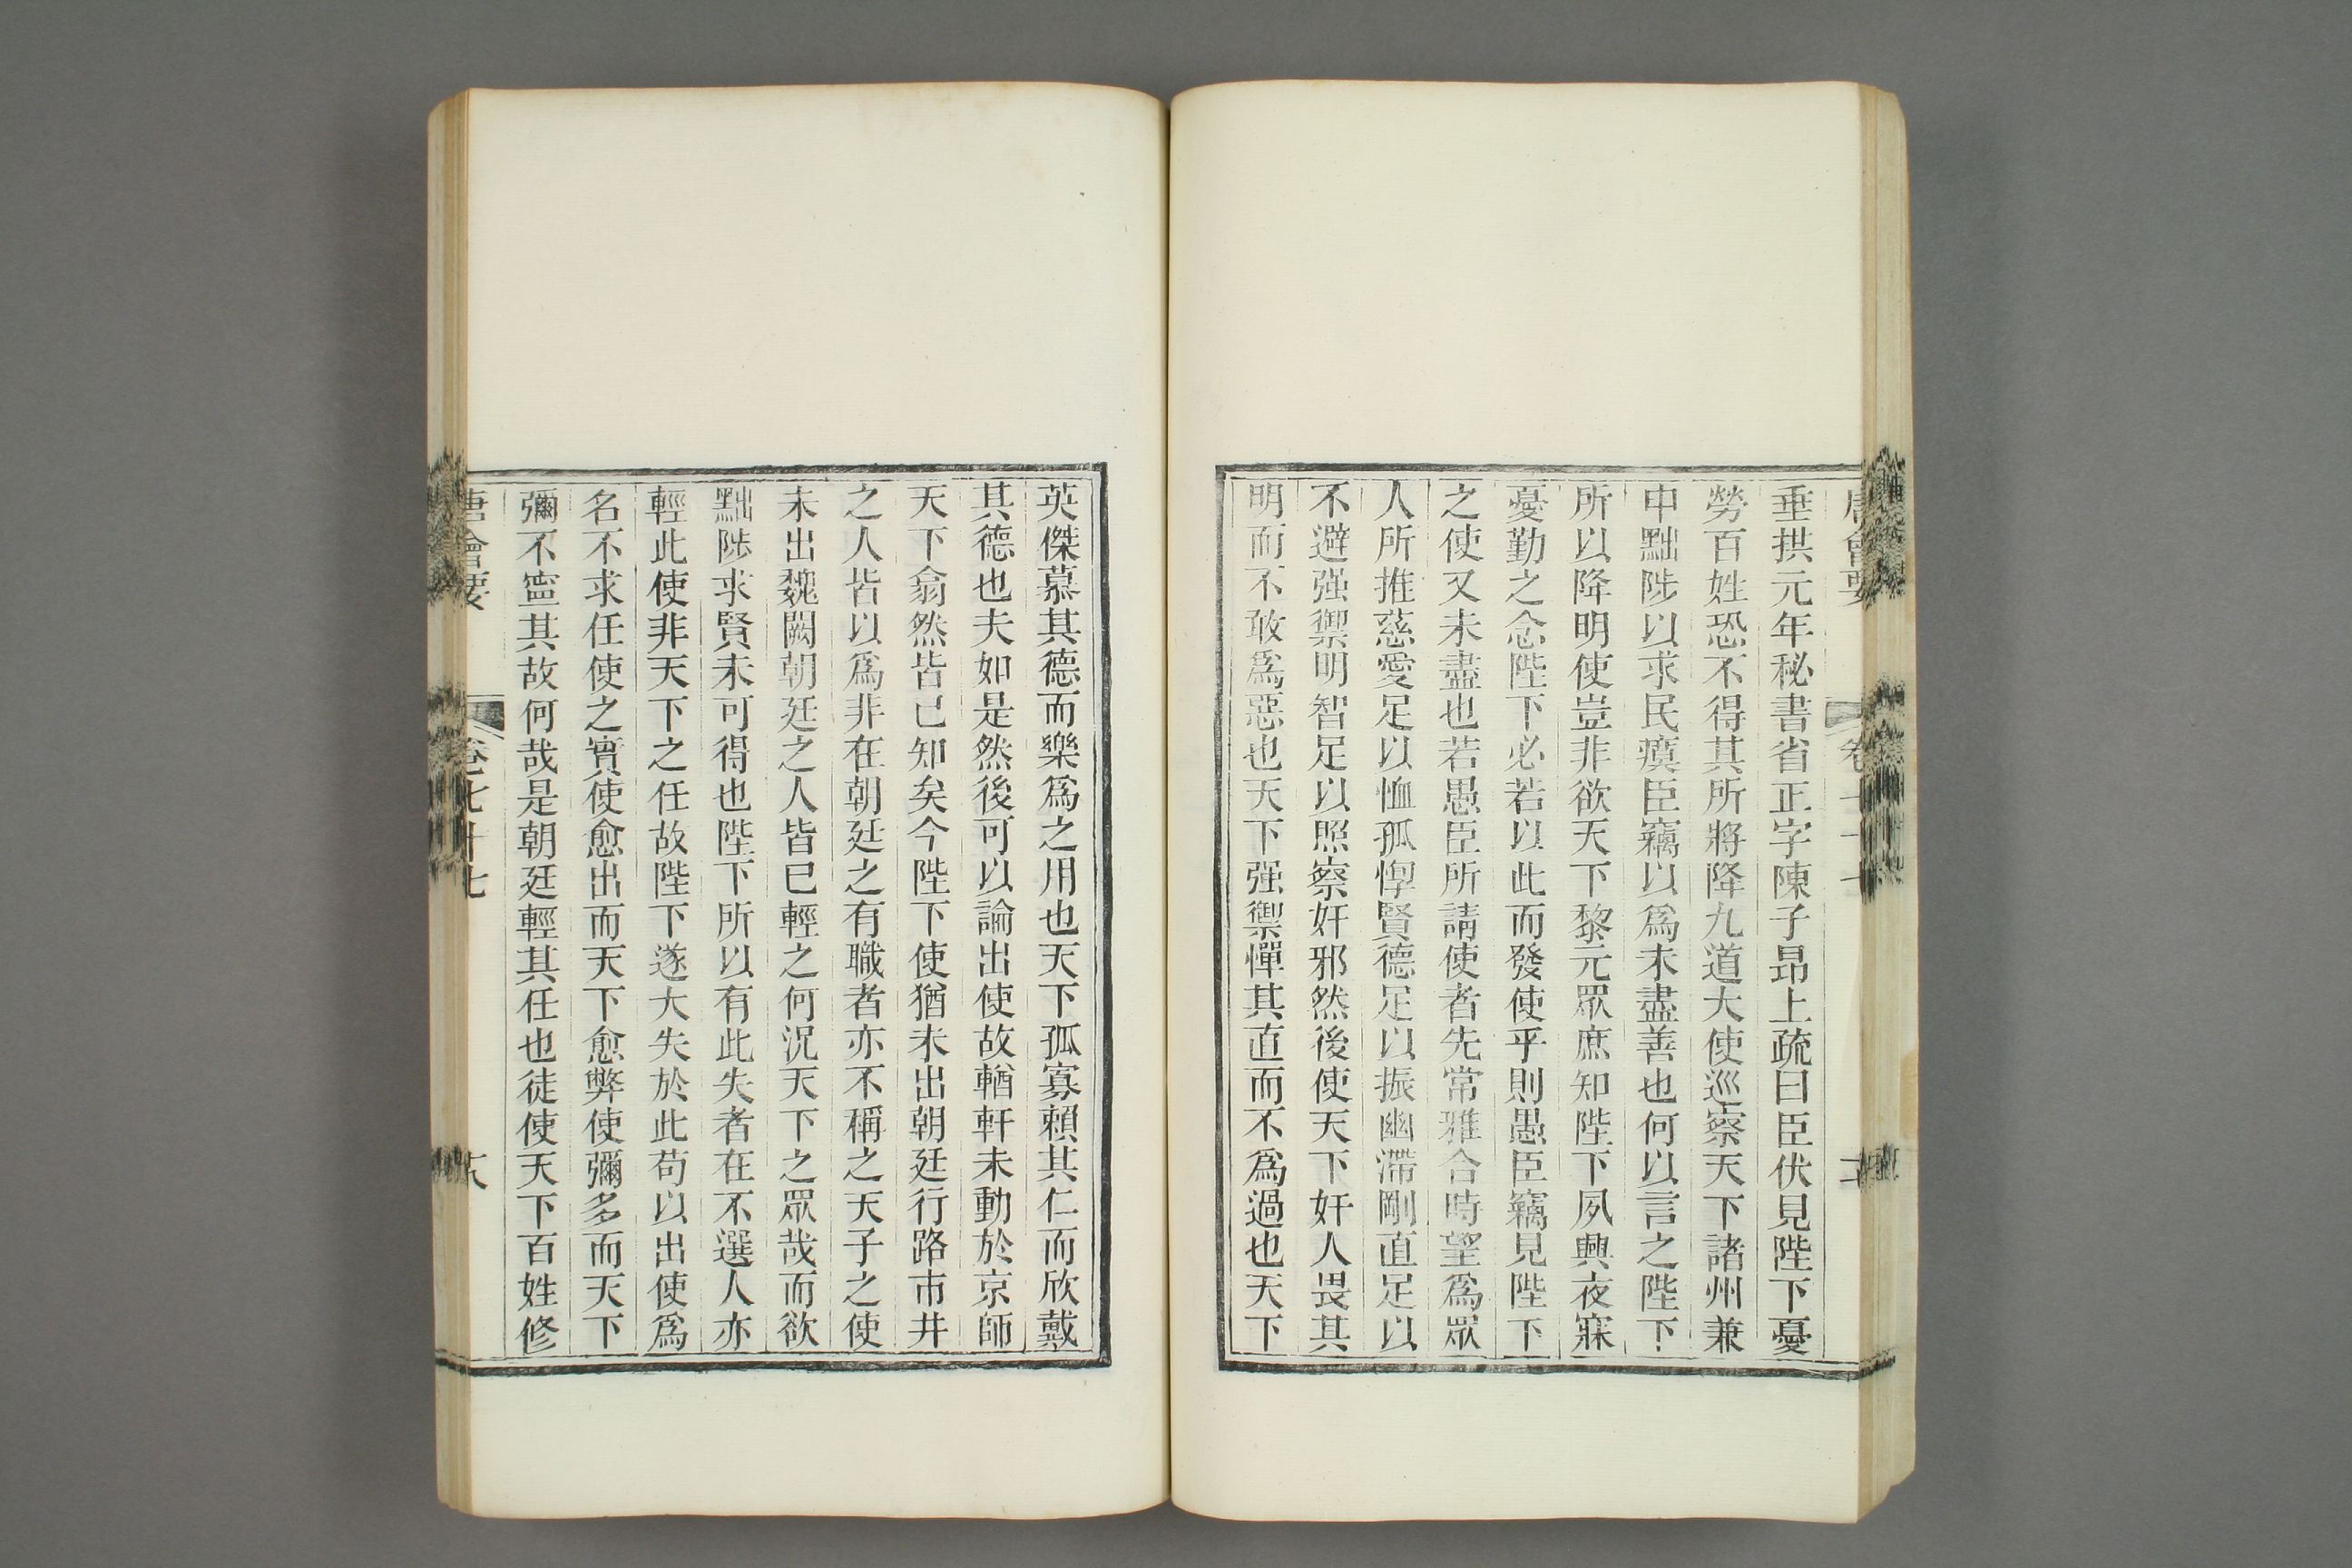 垂拱元年秘書省正字陳子昂上疏曰臣伏見陛下憂
勞百姓恐不得其所將降九道大使巡察天下諸州兼
申黜陟以求民瘼臣竊以爲未盡善也何以言之陛下
所以降明使豈非欲天下黎元眾庶知陛下夙興夜寐
憂勤之念陛下必若以此而發使乎則愚臣竊見陛下
之使又未盡也若愚臣所請使者先常雅合時望爲眾
人所推慈愛足以恤孤惸賢德足以振幽滯剛直足以
不避强禦明智足以照察奸邪然後使天下奸人畏其
明而不敢爲惡也天下强禦憚其直而不爲過也天下
英傑慕其德而樂爲之用也天下孤寡賴其仁而欣戴
其德也夫如是然後可以論出使故輶軒未動於京師
天下翕然皆已知矣今陛下使猶未出朝廷行路市井
之人皆以爲非在朝廷之有職者亦不稱之天子之使
未出魏闕朝廷之人皆已輕之何況天下之眾哉而欲
黜陟求賢未可得也陛下所以有此失者在不選人亦
輕此使非天下之任故陛下遂大失於此苟以出使爲
名不求任使之實使愈出而天下愈弊使彌多而天下
彌不寍其故何哉是朝廷輕其任也徒使天下百姓修
唐會要 卷七十七